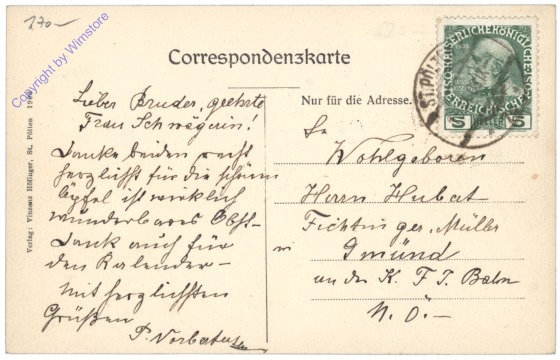 270—
Copyright by Wimstore
Correspondenzkarte
Nur für die Adresse.
KAISERLICHE KÖNIGLICHE
ÖSTERREICHISCHE
5 HELLER 5
ST. PÖLT
Lieber Bruder, geehrte
Frau Schwägerin!
Danke beiden recht
herzlichst für die schönen
Äpfel ist wirklich
wunderbares Obst—
Dank auch für
den Kalender—
mit herzlichsten
Grüßen
P.
Sr
Wohlgeboren
Herrn Hubert
Müller
in Gmünd
an der K. F. J. Bahn
N. Ö.—
Verlag: Vinzenz Höfinger, St. Pölten